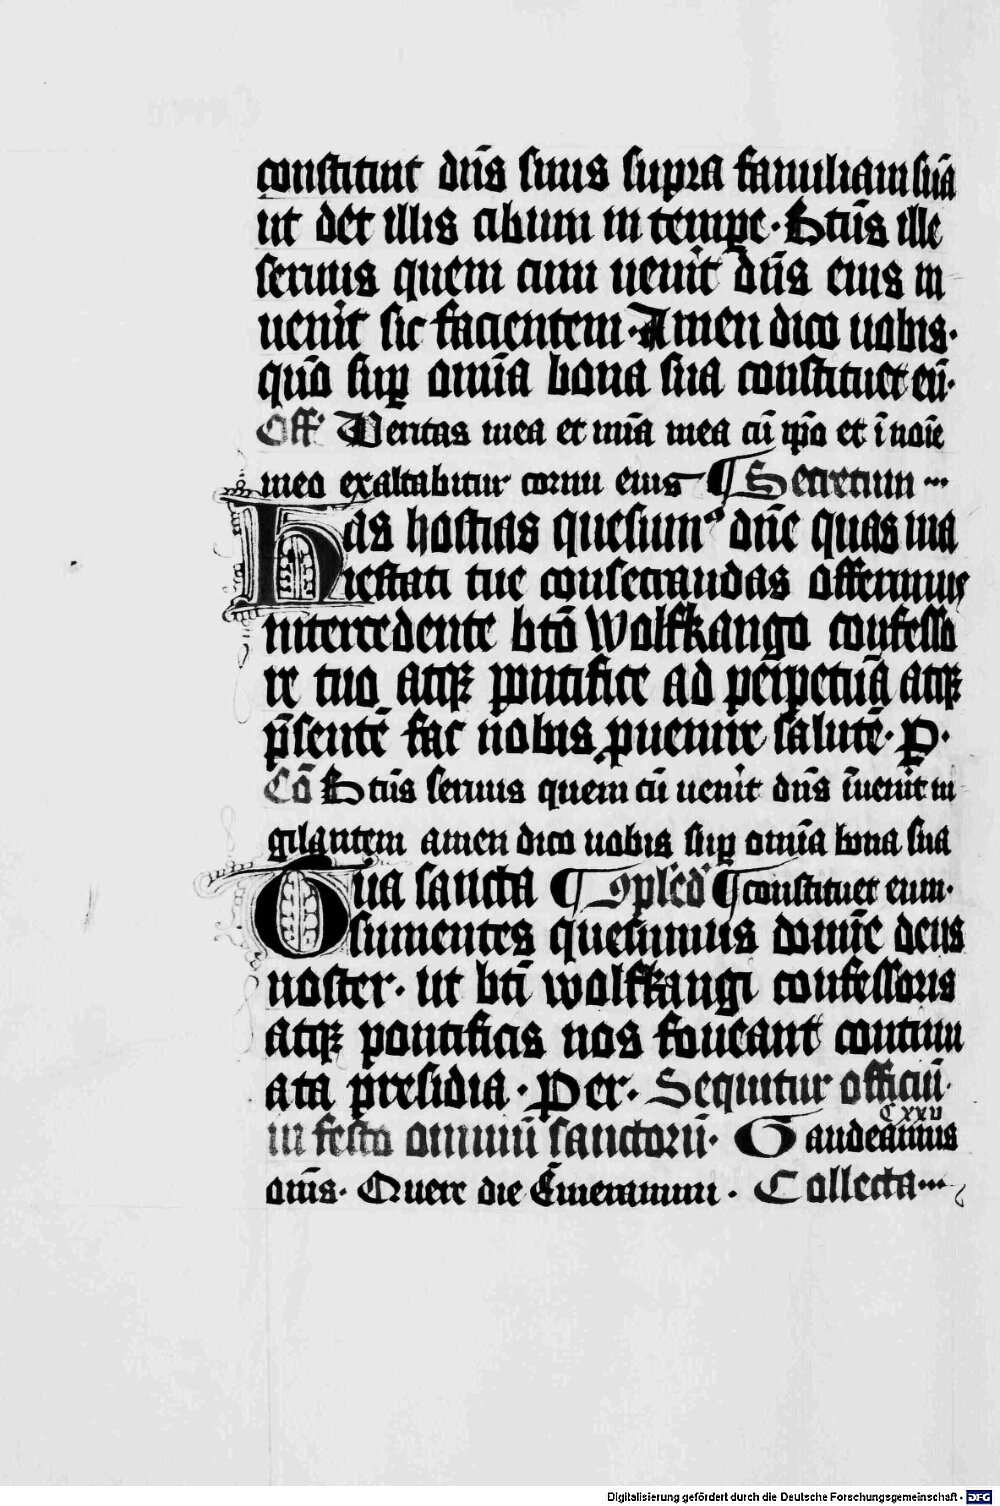 constituit dn̄s suus supra familiam suā
ut det illis cibum in tempe· Btūs ille
seruus quem cum uenit dn̄s eius in
uenit sic facientem· Amen dico uobis·
quō sup omīa bona sua constituet eū·
Off Veritas mea et mīa mea cū ipō et ī noīe
meo exaltabitur cornu eius ¶ Secretum
Has hostias quesumꝰ dn̄e quas ma
iestati tue consecrandas offerimus
intercedente btō Wolfkango confesso
re tuo atqꝫ pontifice ad perpetuā atqꝫ
p̄sentē fac nobis ꝓuenire salutē· P·
Cō Btūs seruus quem cū uenit dn̄s īuenit ui
gilantem amen dico uobis sup omīa bona sua
Tua sancta ¶ ꝯplēd ¶ constituet eum·
sumentes quesumus domīe deus
noster· ut btī wolfkangi confessoris
atqꝫ pontificis nos foueant continu
ata presidia· Per· Sequitur officiū
in festo omniū sanctorū· Gaudeamus
CXXV
omīs· Quere die Emerammi· Collecta
Digitalisierung gefördert durch die Deutsche Forschungsgemeinschaft - DFG